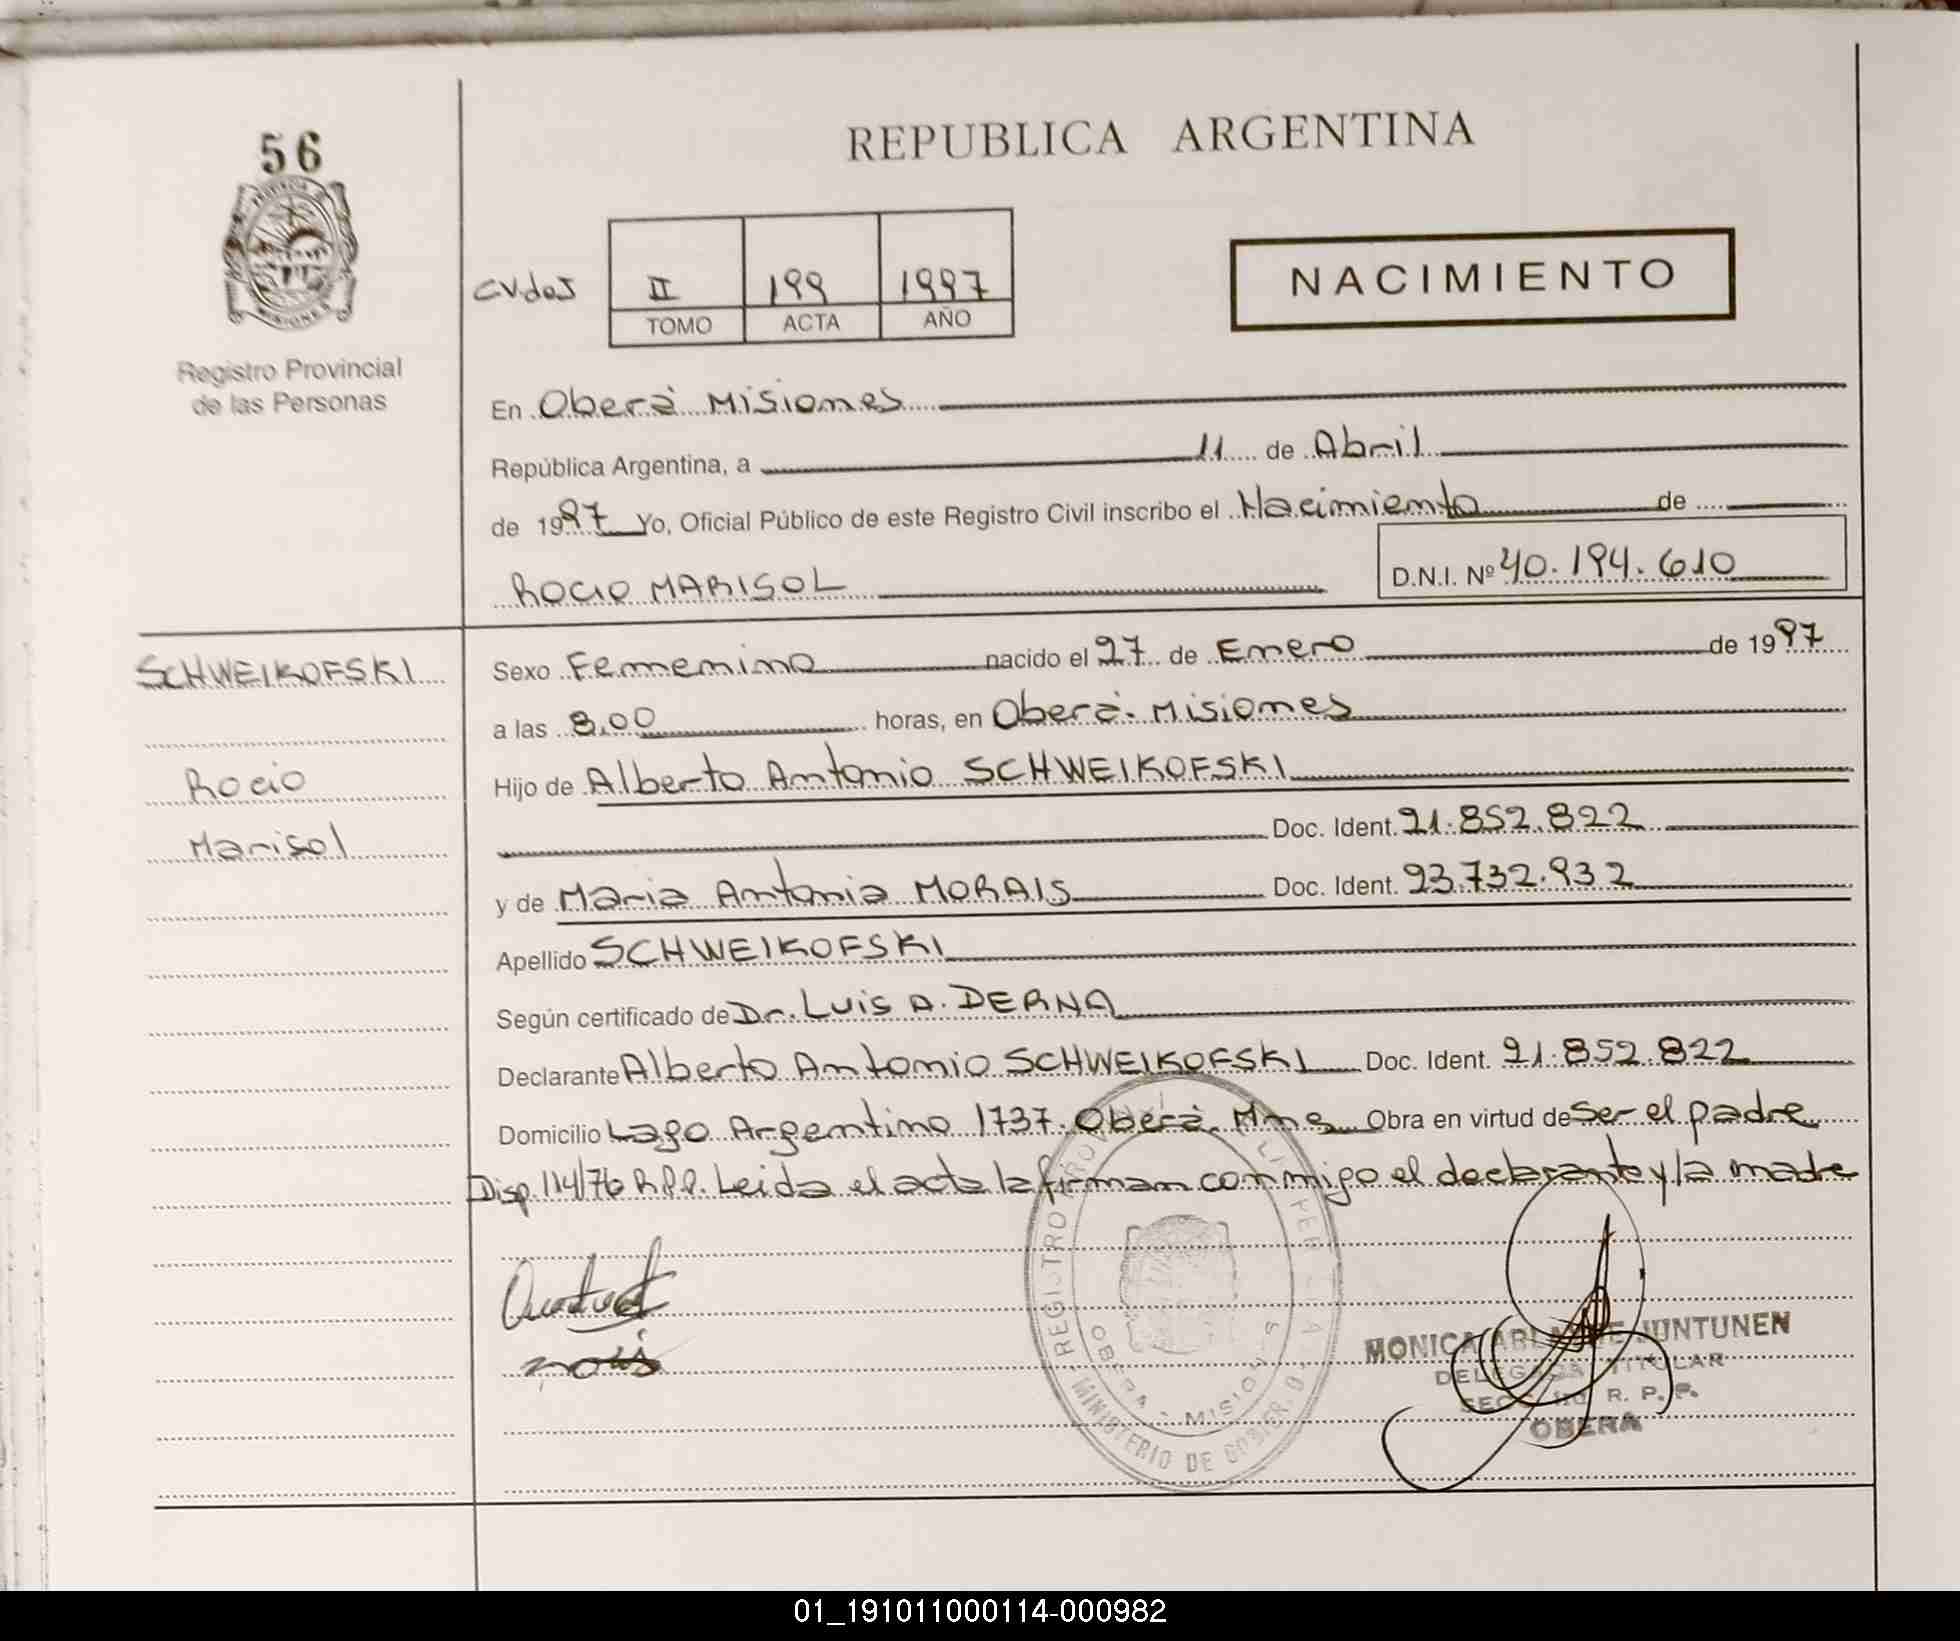 56
REPUBLICA ARGENTINA
PROVINCIA DE
MISIONES
Registro Provincial
de las Personas
II 199 1997
TOMO ACTA AÑO
NACIMIENTO
En Oberá Misiones
República Argentina, a 11 de Abril
de 1997 Yo, Oficial Público de este Registro Civil inscribo el Nacimiento de
ROCIO MARISOL
D.N.I. Nº 40.194.610
SCHWEIKOFSKI
Rocio
Marisol
Sexo Femenino nacido el 27 de Enero de 1997
a las 8,00 horas, en Oberá. Misiones
Hijo de Alberto Antonio SCHWEIKOFSKI
Doc. Ident. 21.852.822
y de Maria Antonia MORAIS Doc. Ident. 93.732.932
Apellido SCHWEIKOFSKI
Según certificado de Dr. Luis A. DERNA
Declarante Alberto Antonio SCHWEIKOFSKI Doc. Ident. 21.852.822
Domicilio Lago Argentino 1737. Oberá. Mnes Obra en virtud de Ser el padre
Disp. 114/76 R.P.P. Leida el acta la firman conmigo el declarante y la madre
REGISTRO
MINISTERIO DE GOBIERNO
OBERA - MISIONES
MONICA JUNTUNEN
DELEGADA TITULAR
R. P. P.
OBERA
01_191011000114-000982